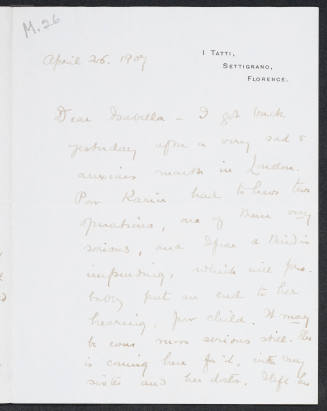 M. 26
April 26. 1907
I TATTI,
SETTIGNANO,
FLORENCE.
Dear Isabella – I got back
yesterday after a very sad &
anxious month in London.
Poor Karin had to have two
operations, one of them very
serious, and I fear a third is
impending, which will pro-
bably put an end to her
hearing, poor child. It may
be even more serious still. She
is coming here for it, with my
sister and her doctor. I left her